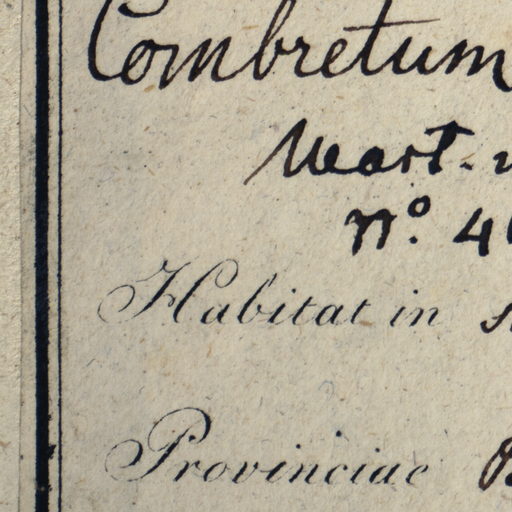 Combretum
Mart.
No. 4
Habitat in
Provinciae